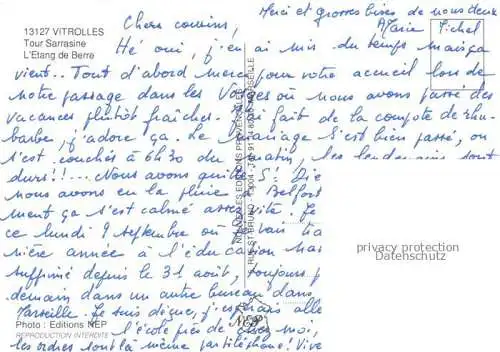 13127 VITROLLES
Tour Sarrasine
L'Etang de Berre
Merci et grosses bises de nous deux
Marie Michel
Chers cousins,
Hé oui, j'en ai mis du temps mais ça
vient.. Tout d'abord merci pour votre accueil lors de
notre passage dans les Vosges où nous avons passé des
vacances plutôt fraîches. J'ai fait de la compote de rhu-
barbe, j'adore ça. Le mariage s'est bien passé, on
s'est couchés à 6h30 du matin, les lendemains sont
durs!!... Nous avons quitté St Dié
nous avons eu la pluie à Belfort
ment ça s'est calmé assez vite. Je
ce lundi 9 septembre où vais
nière année à l'éducation
supprimé depuis le 31 août, toujours
demain dans un autre bureau dans
Marseille. Je suis déçue, j'espérais
l'école près de chez moi,
les ordres sont là même par téléphone! Vive
privacy protection
Datenschutz
Photo : Editions NEP
REPRODUCTION INTERDITE
NEP